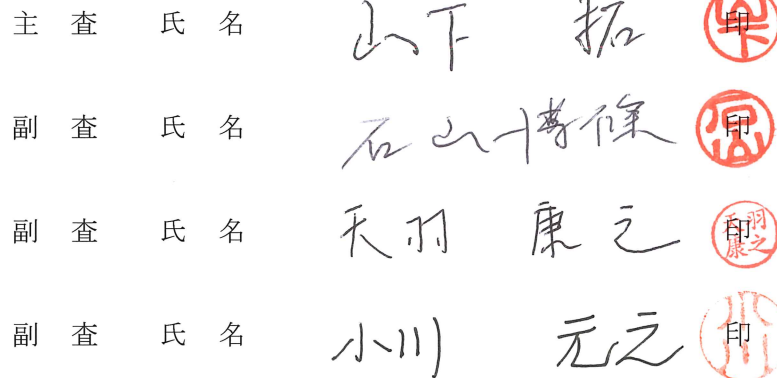 主 査 氏 名 山下 拓 印
副 査 氏 名 石山博條 印
副 査 氏 名 天羽 康之 印
副 査 氏 名 小川 元之 印